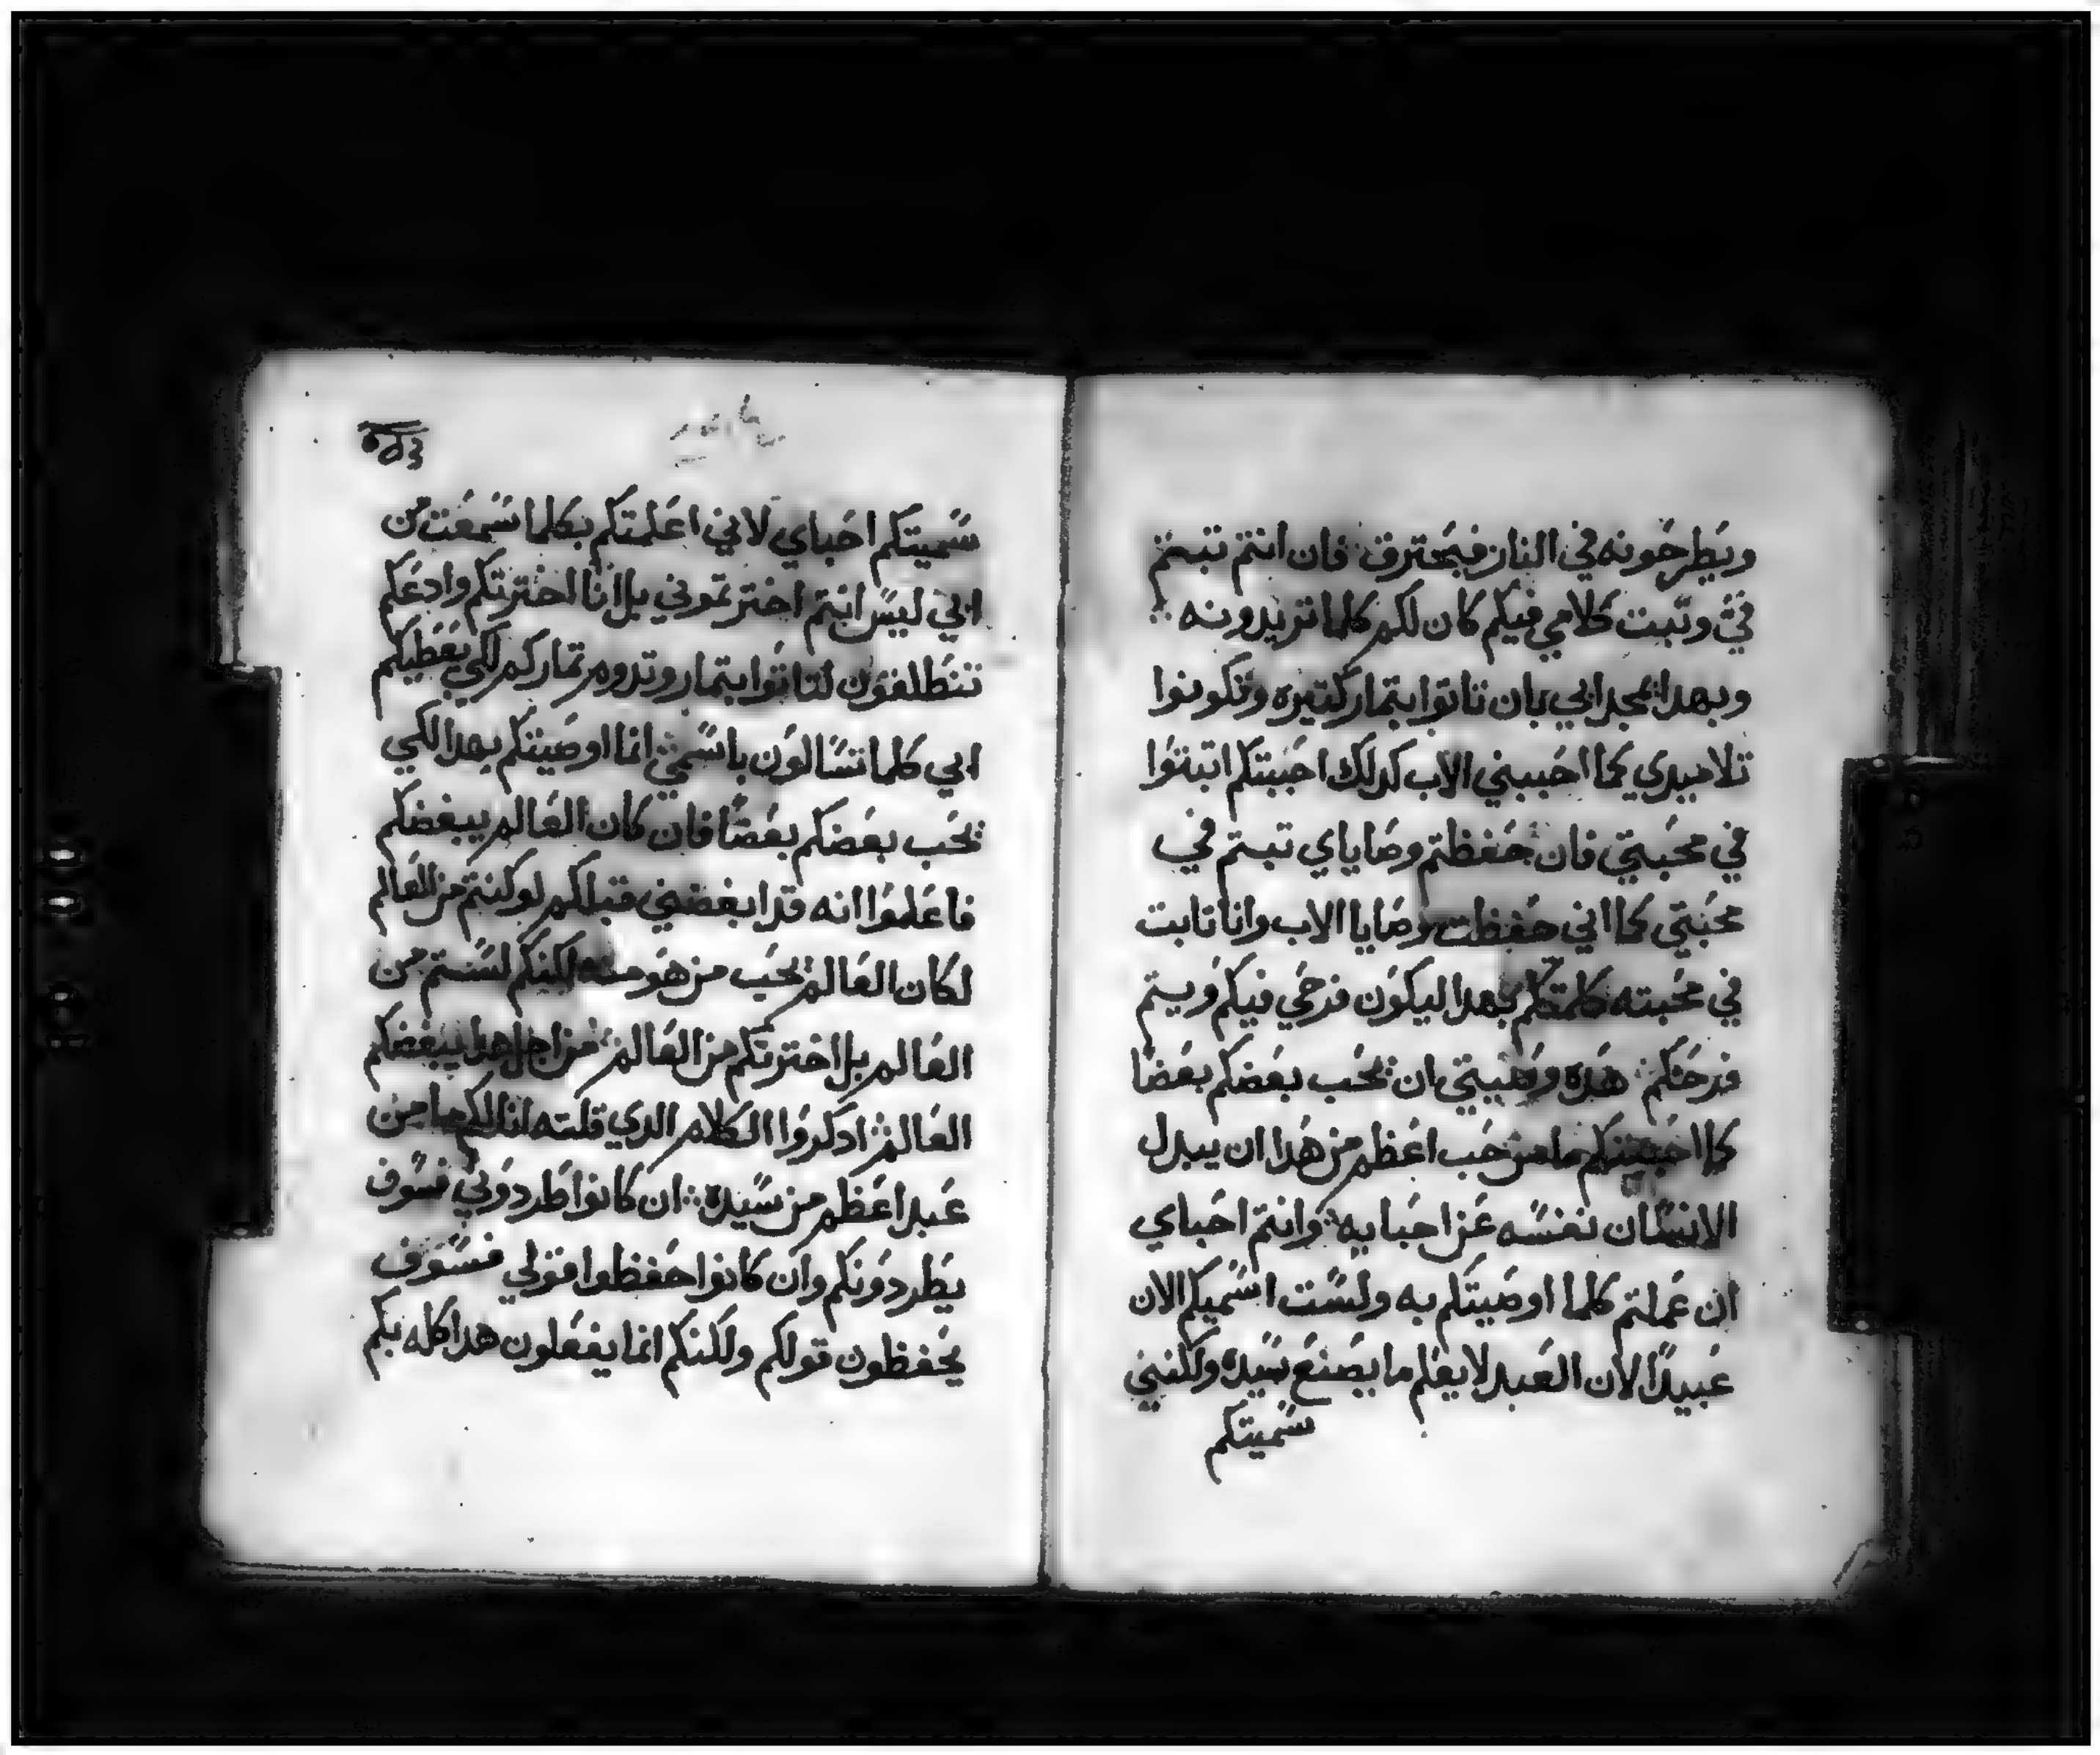 ويطرحونه في النار فيحترق فان انتم تبتم
فيَّ وتبت كلامي فيكم كان لكم كلما تريدونه
وبهدا يمجد ابي بان تاتوا بتمار كتيره وتكونوا
تلاميدي كما احببني الاب كدلك احببتكم اتبتوا
في محبتي فان حفظتم وصاياي تبتم في
محبتي كما اني حفظت وصايا الاب وانا تابت
في محبته كلمتكم بهدا ليكون فرحي فيكم ويتم
فرحكم هده وصيتي ان يحب بعضكم بعضا
كما احببتكم ما من حب اعظم من هدا ان يبدل
الانسان نفسه عن احبايه وانتم احباي
ان عملتم كلما اوصيتكم به ولست اسميكم الان
عبيدًا لان العبد لا يعلم ما يصنع سيده ولكنني
سميتكم
سميتكم احباي لاني اعلمتكم بكلما سمعت من
ابي ليس انتم اخترتموني بل انا اخترتكم وادعكم
تنطلقون لتاتوا بتمار وتدوم تماركم لكي يعطيكم
ابي كلما تسالون باسمي انما اوصيتكم بهدا لكي
يحب بعضكم بعضًا فان كان العالم يبغضكم
فاعلموا انه قد ابغضني قبلكم لو كنتم من العالم
لكان العالم يحب من هو منه لكنكم لستم من
العالم بل اخترتكم من العالم فمن اجل هدا يبغضكم
العالم ادكروا الكلام الدي قلته انا لكم ما من
عبد اعظم من سيده ان كانوا طردوني فسوف
يطردونكم وان كانوا حفظوا قولي فسوف
يحفظون قولكم ولكنكم انما يفعلون هدا كله بكم